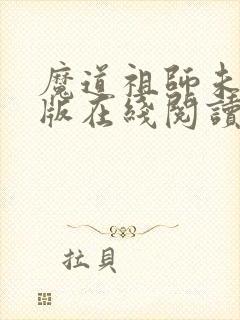 魔道祖師未
版在綫閱讀
拉貝